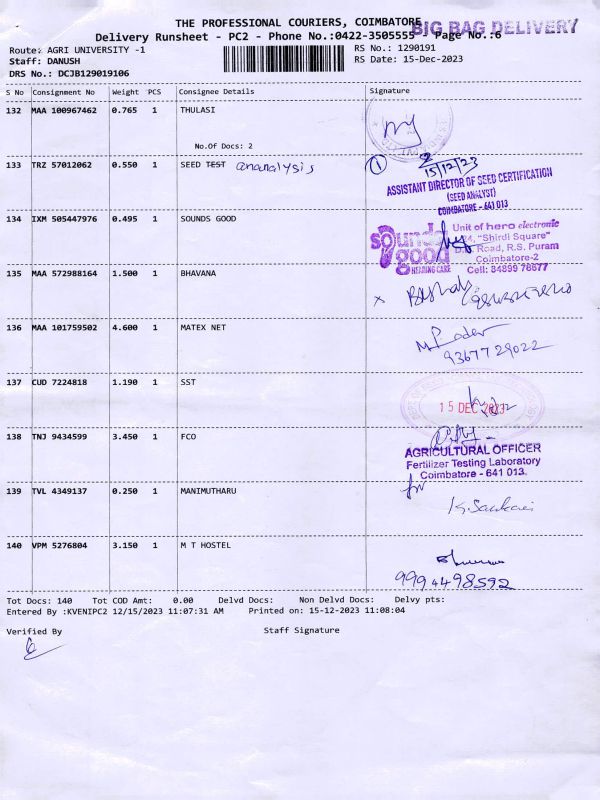 THE PROFESSIONAL COURIERS, COIMBATORE
BIG BAG DELIVERY
Delivery Runsheet - PC2 - Phone No.:0422-3505555 Page No.:6
Route: AGRI UNIVERSITY -1
RS No.: 1290191
Staff: DANUSH
RS Date: 15-Dec-2023
DRS No.: DCJB129019106
S No Consignment No Weight PCS Consignee Details Signature
132 MAA 100967462 0.765 1 THULASI
No.Of Docs: 2
133 TRZ 57012062 0.550 1 SEED TEST ananalysis
1
15/12/23
ASSISTANT DIRECTOR OF SEED CERTIFICATION
(SEED ANALYST)
COIMBATORE - 641 013
134 IXM 505447976 0.495 1 SOUNDS GOOD
sounds good
HEARING CARE
Unit of hero electronic
"Shirdi Square"
Road, R.S. Puram
Coimbatore-2
Cell: 84899 78677
135 MAA 572988164 1.500 1 BHAVANA
x
136 MAA 101759502 4.600 1 MATEX NET
9367729022
137 CUD 7224818 1.190 1 SST
15 DEC 2023
138 TNJ 9434599 3.450 1 FCO
AGRICULTURAL OFFICER
Fertilizer Testing Laboratory
Coimbatore - 641 013.
for
139 TVL 4349137 0.250 1 MANIMUTHARU
140 VPM 5276804 3.150 1 M T HOSTEL
9994498592
Tot Docs: 140 Tot COD Amt: 0.00 Delvd Docs: Non Delvd Docs: Delvy pts:
Entered By :KVENIPC2 12/15/2023 11:07:31 AM Printed on: 15-12-2023 11:08:04
Verified By Staff Signature